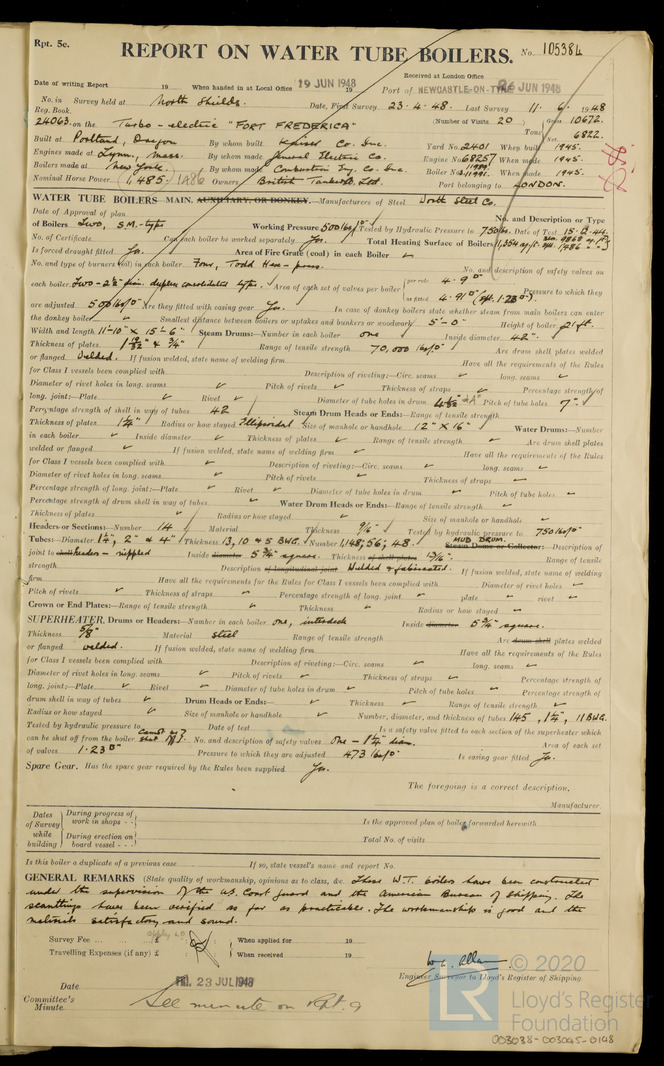 Rpt. 5c.
REPORT ON WATER TUBE BOILERS. No. 105384
Received at London Office
Date of writing Report 19 When handed in at Local Office 19 JUN 1948 19 Port of NEWCASTLE-ON-TYNE 26 JUN 1948
No. in Survey held at North Shields. Date, First Survey 23.4.48. Last Survey 11. 6. 1948
Reg. Book. (Number of Visits 20 ) Gross 10672.
24063 on the Turbo-electric "FORT FREDERICA" Tons Net 6822.
Built at Portland, Oregon By whom built Kaiser Co. Inc. Yard No. 2401 When built 1945.
Engines made at Lynn, Mass. By whom made General Electric Co. Engine No. 68257 When made 1945.
Boilers made at New York. By whom made Combustion Eng. Co. Inc. Boiler No. When made 1945.
Nominal Horse Power 1,485. 1486 Owners British Tankers Ltd. Port belonging to LONDON.
WATER TUBE BOILERS—MAIN, AUXILIARY, OR DONKEY.—Manufacturers of Steel Worth Steel Co.
Date of Approval of plan No. and Description or Type
of Boilers Two, S.M.-type Working Pressure 500 lbs/□" Tested by Hydraulic Pressure to 750 lbs. Date of Test 15.12.44.
No. of Certificate Can each boiler be worked separately Yes. Total Heating Surface of Boilers
Is forced draught fitted Yes. Area of Fire Grate (coal) in each Boiler
No. and type of burners (oil) in each boiler Four, Todd Hex-press. No. and description of safety valves on
each boiler Two-2½" dia. duplex consolidated type. Area of each set of valves per boiler { per rule 4.9□" as fitted 4.91□" Pressure to which they
are adjusted 500 lbs/□" Are they fitted with easing gear Yes. In case of donkey boilers state whether steam from main boilers can enter
the donkey boiler Smallest distance between boilers or uptakes and bunkers or woodwork 5'-0" Height of boiler 21 ft.
Width and length 11'-10" x 15'-6" Steam Drums:—Number in each boiler one Inside diameter 42"
Thickness of plates Range of tensile strength 70,000 lbs/□" Are drum shell plates welded
or flanged Welded. If fusion welded, state name of welding firm Have all the requirements of the Rules
for Class I vessels been complied with Description of riveting:—Circ. seams long. seams
Diameter of rivet holes in long. seams Pitch of rivets Thickness of straps Percentage strength of
long. joint:—Plate Rivet Diameter of tube holes in drum Pitch of tube holes 7"
Percentage strength of shell in way of tubes 42 Steam Drum Heads or Ends:—Range of tensile strength
Thickness of plates 1¼" Radius or how stayed Ellipsoidal Size of manhole or handhole 12" x 16" Water Drums:—Number
in each boiler Inside diameter Thickness of plates Range of tensile strength Are drum shell plates
welded or flanged If fusion welded, state name of welding firm Have all the requirements of the Rules
for Class I vessels been complied with Description of riveting:—Circ. seams long. seams
Diameter of rivet holes in long. seams Pitch of rivets Thickness of straps
Percentage strength of long. joint:—Plate Rivet Diameter of tube holes in drum Pitch of tube holes
Percentage strength of drum shell in way of tubes Water Drum Heads or Ends:—Range of tensile strength
Thickness of plates Radius or how stayed Size of manhole or handhole
Headers or Sections:—Number 14 Material Thickness 9/16" Tested by hydraulic pressure to 750 lbs/□"
Tubes:—Diameter 1¼", 2" & 4" Thickness 13, 10 & 5 BWG. Number 1,148; 56; 48. MUD DRUM. Steam Dome or Collector:—Description of
joint to shell header - nippled Inside diameter 5¾" square. Thickness of shell plates 13/16" Range of tensile
strength Description of longitudinal joint Welded & fabricated. If fusion welded, state name of welding
firm Have all the requirements for the Rules for Class I vessels been complied with Diameter of rivet holes
Pitch of rivets Thickness of straps Percentage strength of long. joint plate rivet
Crown or End Plates:—Range of tensile strength Thickness Radius or how stayed
SUPERHEATER. Drums or Headers:—Number in each boiler one, interdeck Inside diameter 5¾" square.
Thickness 5/8" Material steel Range of tensile strength Are drum shell plates welded
or flanged welded. If fusion welded, state name of welding firm Have all the requirements of the Rules
for Class I vessels been complied with Description of riveting:—Circ. seams long. seams
Diameter of rivet holes in long. seams Pitch of rivets Thickness of straps Percentage strength of
long. joint:—Plate Rivet Diameter of tube holes in drum Pitch of tube holes Percentage strength of
drum shell in way of tubes Drum Heads or Ends:— Thickness Range of tensile strength
Radius or how stayed Size of manhole or handhole Number, diameter, and thickness of tubes 145, 1¼", 11 BWG.
Tested by hydraulic pressure to Date of test Is a safety valve fitted to each section of the superheater which
can be shut off from the boiler cannot be shut off. No. and description of safety valves one - 1¼" diam. Area of each set
of valves 1.23□" Pressure to which they are adjusted 473 lbs/□" Is easing gear fitted Yes.
Spare Gear. Has the spare gear required by the Rules been supplied Yes.
The foregoing is a correct description,
Manufacturer.
Dates of Survey while building { During progress of work in shops - - Is the approved plan of boiler forwarded herewith
During erection on board vessel - - - Total No. of visits
Is this boiler a duplicate of a previous case If so, state vessel's name and report No.
GENERAL REMARKS (State quality of workmanship, opinions as to class, &c. These W.T. boilers have been constructed
under the supervision of the U.S. Coast guard and the American Bureau of Shipping. The
scantlings have been verified as far as practicable. The workmanship is good and the
materials satisfactory and sound.
Survey Fee ... ... £ When applied for 19
Travelling Expenses (if any) £ When received 19
Engineer Surveyor to Lloyd's Register of Shipping.
Date FRI. 23 JUL 1948
Committee's Minute See minute on Rpt. 9
© 2020
LR
Lloyd's Register
Foundation
003038-003045-0148